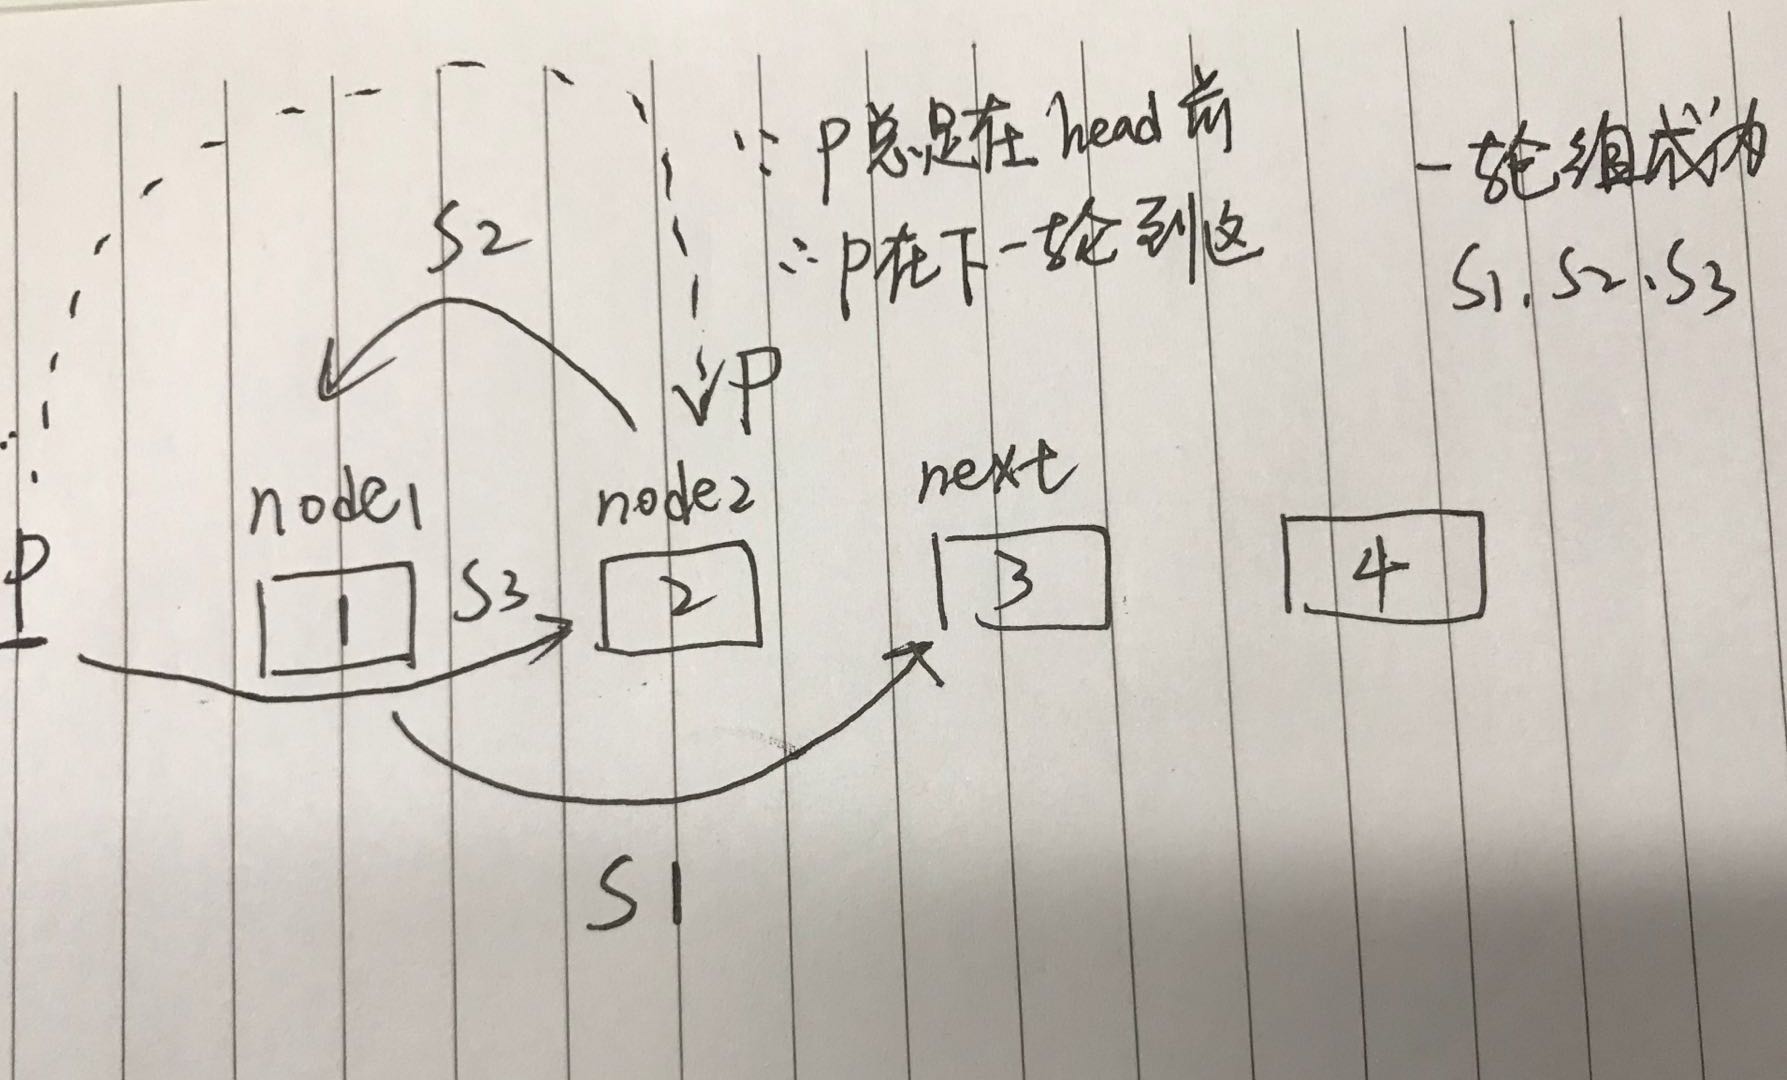 ∵ P总是在head前
∴ P在下一轮到这
一轮组成为
S1、S2、S3
S2
P
node1
node2
next
P
1
S3
2
3
4
S1